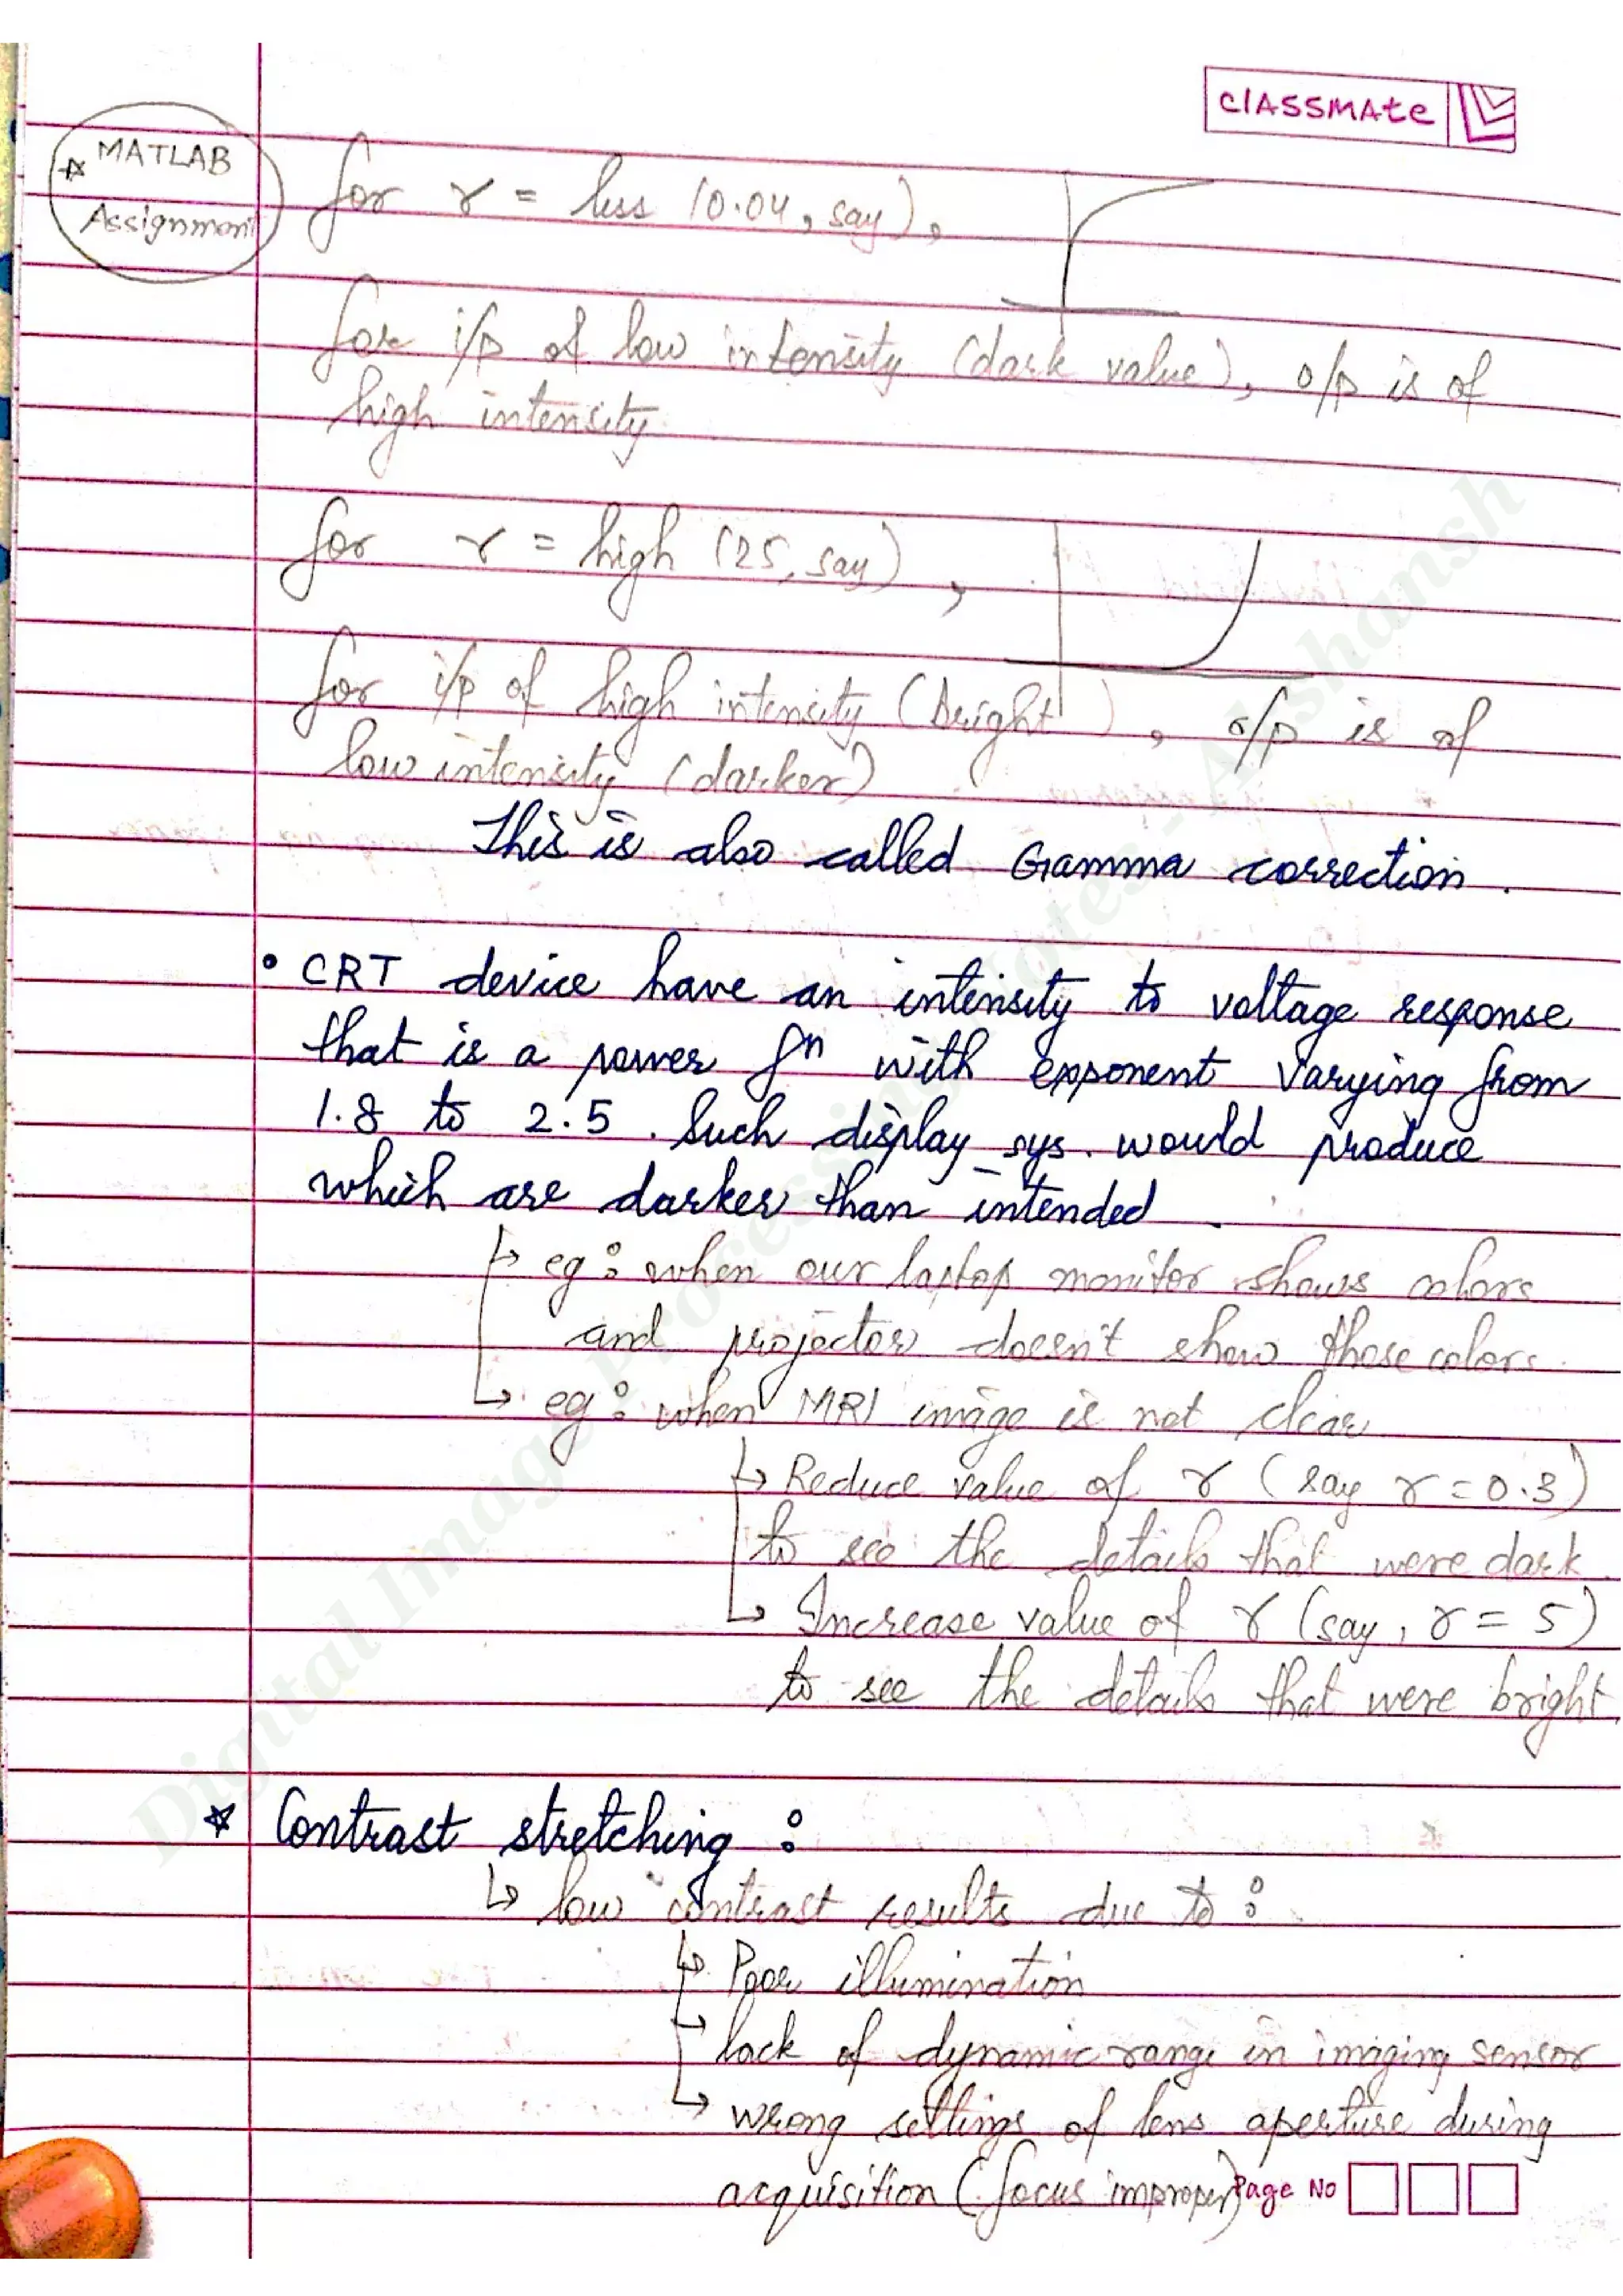 classmate
☆ MATLAB
Assignment
for γ = less (0.04, say),
for i/p of low intensity (dark value), o/p is of
high intensity
for γ = high (25, say),
for i/p of high intensity (bright ), o/p is of
low intensity (darker)
This is also called Gamma correction.
• CRT device have an intensity to voltage response
that is a power fⁿ with exponent varying from
1.8 to 2.5. Such display sys. would produce
which are darker than intended.
↳ eg: when our laptop monitor shows colors
and projector doesn't show those colors.
↳ eg: when MRI image is not clear
↳ Reduce value of γ (say γ = 0.3)
to see the details that were dark.
↳ Increase value of γ (say, γ = 5)
to see the details that were bright.
☆ Contrast stretching :
↳ low contrast results due to :
↳ Poor illumination
↳ lack of dynamic range in imaging sensor
↳ wrong settings of lens aperture during
acquisition (focus improper)
Page No
Digital Image Processing Notes - Akshansh